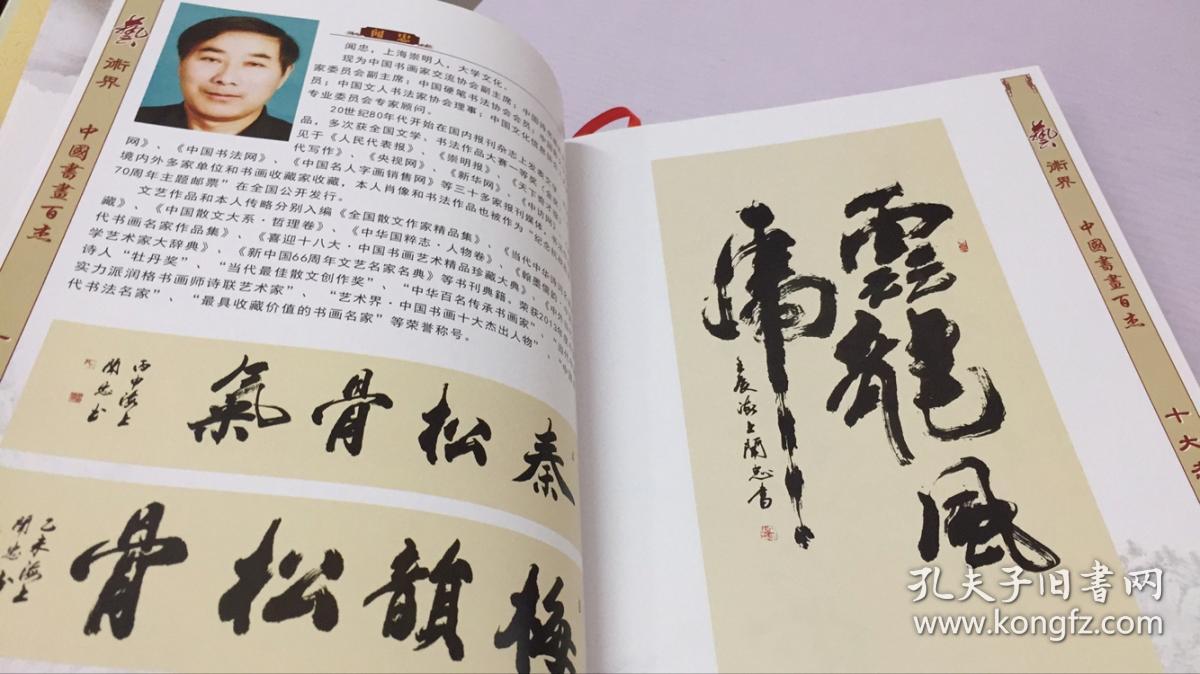 藝
术界
中國書畫百杰
闻忠
闻忠，上海崇明人，大学文化。
现为中国书画家交流协会副主席；中国诗书
家委员会副主席；中国硬笔书法协会会员；中国
员；中国文人书法家协会理事；中国文化信息
专业委员会专家顾问。
20世纪80年代开始在国内报刊杂志上发表文学
品，多次获全国文学、书法作品大赛一等奖、金奖
见于《人民代表报》、《崇明报》、《天下
代写作》、《央视网》、《新华网》、《中访网》
网》、《中国书法网》、《中国名人字画销售网》等三十多家报刊媒体，书法
境内外多家单位和书画收藏家收藏，本人肖像和书法作品也被作为“纪念
70周年主题邮票”在全国公开发行。
文艺作品和本人传略分别入编《全国散文作家精品集》、《当代中华诗
藏》、《中国散文大系·哲理卷》、《中华国粹志·人物卷》、《翰墨儒韵
代书画名家作品集》、《喜迎十八大·中国书画艺术精品珍藏大典》、《中外
学艺术家大辞典》、《新中国66周年文艺名家名典》等书刊典籍，荣获2013年度
诗人“牡丹奖”、“当代最佳散文创作奖”、“中华百名传承书画家”、“当代
实力派润格书画师诗联艺术家”、“艺术界·中国书画十大杰出人物”、“中国
代书法名家”、“最具收藏价值的书画名家”等荣誉称号。
秦松骨氣
丙申海上
闻忠书
梅韻松骨
乙未海上
闻忠书
雲龍風
虎
壬辰海上闻忠书
藝
术界
中國書畫百杰
十大杰
孔夫子旧书网
www.kongfz.com